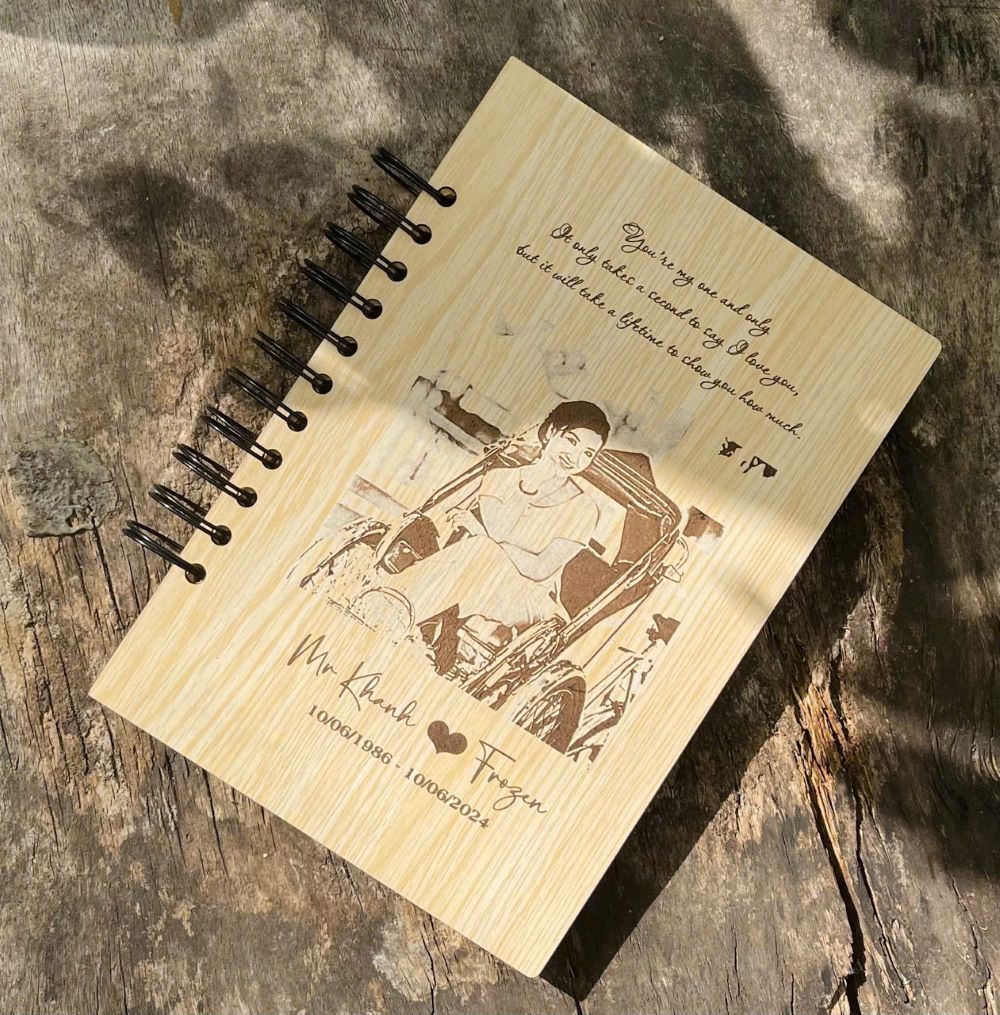 You're my one and only
It only takes a second to say I love you,
but it will take a lifetime to show you how much.
Mr Khanh ♥ Frozen
10/06/1986 - 10/06/2024